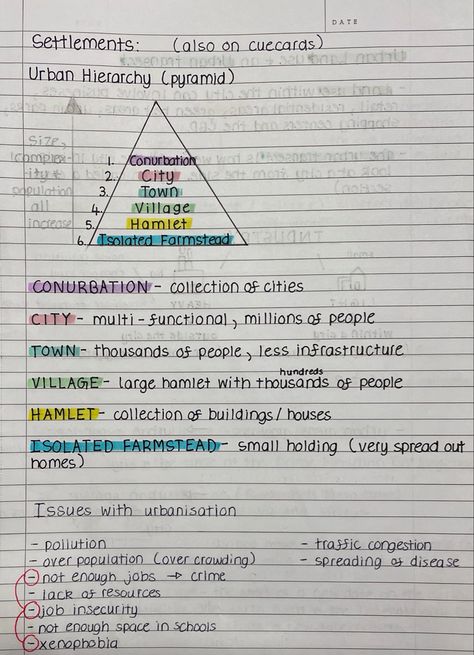 DATE
Settlements: (also on cuecards)
Urban Hierarchy (pyramid)
Size,
complex-
ity &
population
all
increase
1. Conurbation
2. City
3. Town
4. Village
5. Hamlet
6. Isolated Farmstead
CONURBATION - collection of cities
CITY - multi-functional, millions of people
TOWN - thousands of people, less infrastructure
hundreds
VILLAGE - large hamlet with thousands of people
HAMLET - collection of buildings/houses
ISOLATED FARMSTEAD - small holding (very spread out
homes)
Issues with urbanisation
- pollution
- over population (over crowding)
- not enough jobs → crime
- lack of resources
- job insecurity
- not enough space in schools
- xenophobia
- traffic congestion
- spreading of disease